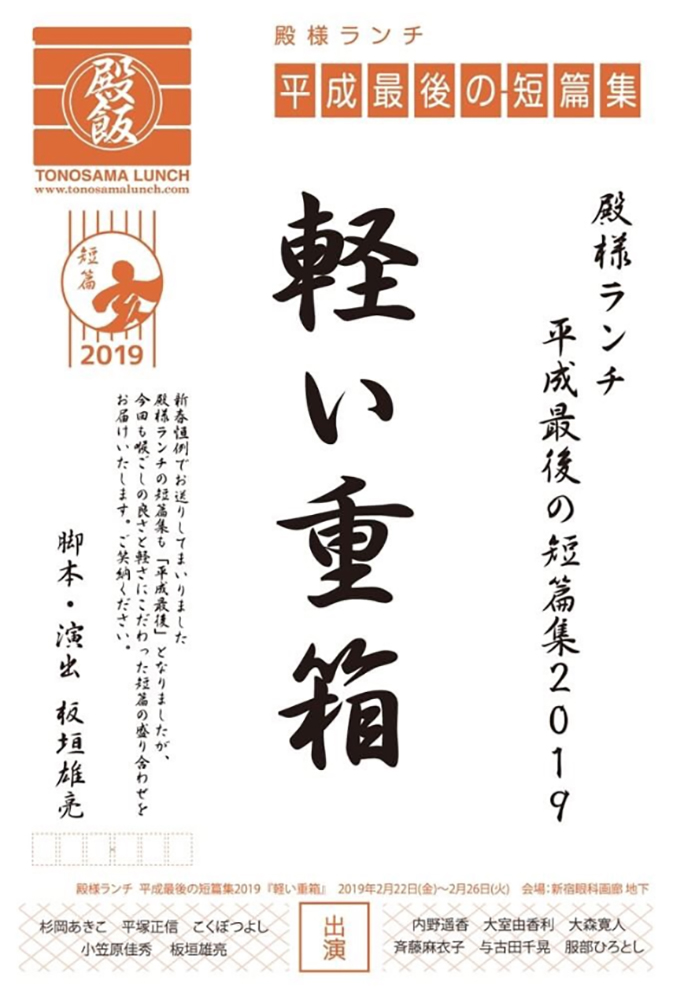 殿様ランチ
平成最後の短篇集
殿飯
TONOSAMA LUNCH
www.tonosamalunch.com
短篇
亥
2019
殿様ランチ
平成最後の短篇集2019
軽い重箱
新春恒例でお送りしてまいりました
殿様ランチの短篇集も「平成最後」となりましたが、
今回も喉ごしの良さと軽さにこだわった短篇の盛り合わせを
お届けいたします。ご笑納ください。
脚本・演出 板垣雄亮
殿様ランチ 平成最後の短篇集2019『軽い重箱』 2019年2月22日(金)〜2月26日(火) 会場：新宿眼科画廊 地下
出演
杉岡あきこ 平塚正信 こくぼつよし
小笠原佳秀 板垣雄亮
内野遥香 大室由香利 大森寛人
斉藤麻衣子 与古田千晃 服部ひろとし